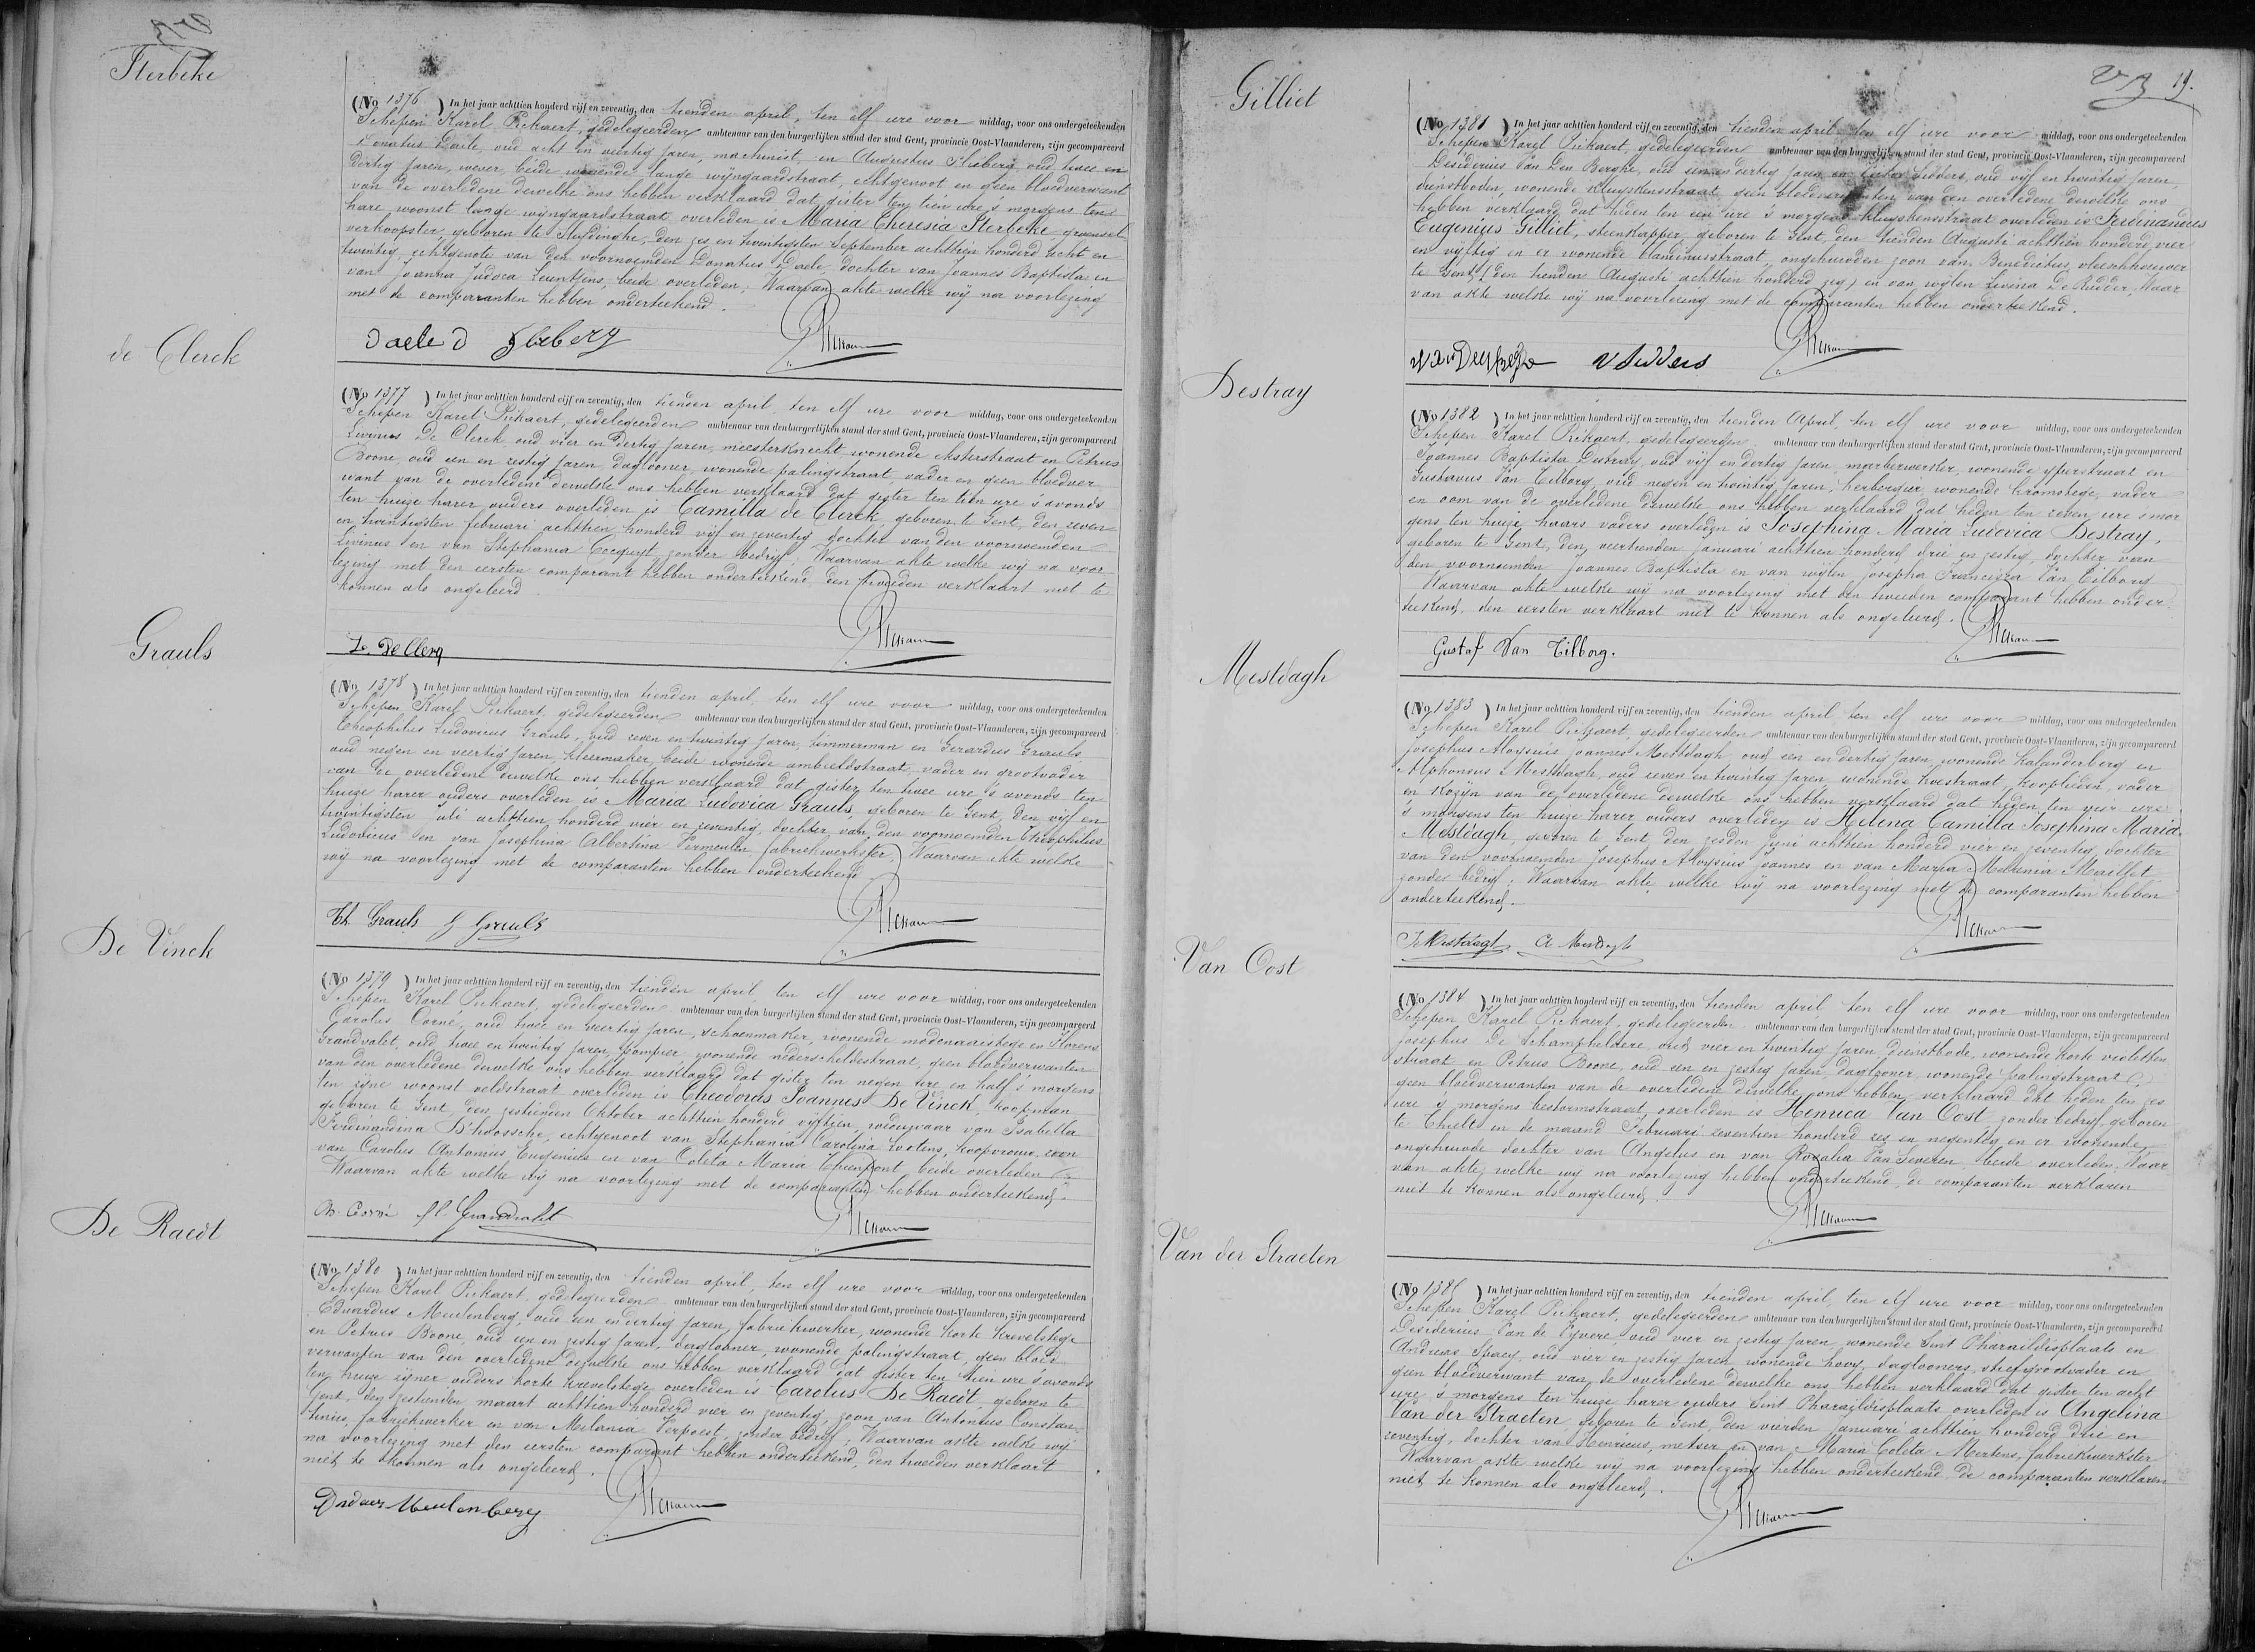 Sterbeke
(No 1376) In het jaar achttien honderd vijf en zeventig, den tienden april, ten elf ure voor middag, voor ons ondergeteekenden
Schepen Karel Pickaert, gedelegeerden ambtenaar van den burgerlijken stand der stad Gent, provincie Oost-Vlaanderen, zijn gecompareerd
Donatus Daele, oud acht en veertig jaren, machinist, en Augustus oud twee en
dertig jaren, wever, beide wonende lange wijngaardstraat, echtgenoot en geen bloedverwant
van de overledene dewelke ons hebben verklaard dat gister ten tien ure 's morgens ten
hare woonst lange wijngaardstraat overleden is Maria Theresia Sterbeke groensel
verkoopster, geboren te Sleydinghe, den zes en twintigsten September achttien honderd acht en
twintig, echtgenote van den voornoemden Donatus Daele, dochter van Joannes Baptista en
van Joanna Judoca beide overleden; Waarvan akte welke wij na voorlezing
met de comparanten hebben onderteekend.
Daele D
de Clerck
(No 1377) In het jaar achttien honderd vijf en zeventig, den tienden april, ten elf ure voor middag, voor ons ondergeteekenden
Schepen Karel Pickaert, gedelegeerden ambtenaar van den burgerlijken stand der stad Gent, provincie Oost-Vlaanderen, zijn gecompareerd
Livinus De Clerck oud vier en dertig jaren, meesterknecht, wonende eksterstraat en Petrus
Boone, oud een en zestig jaren, daglooner, wonende palingstraat, vader en geen bloedver
want van de overledene dewelke ons hebben verklaard dat gister ten tien ure 's avonds
ten huize harer ouders overleden is Camilla de Clerck geboren te Gent, den zeven
en twintigsten februari achttien honderd vijf en zeventig dochter van den voornoemden
Livinus en van Stephania Cocquyt, zonder bedrijf; Waarvan akte welke wij na voor
lezing met den eersten comparant hebben onderteekend, den tweeden verklaart niet te
konnen als ongeleerd
L. De Clerq
Grauls
(No 1378) In het jaar achttien honderd vijf en zeventig, den tienden april, ten elf ure voor middag, voor ons ondergeteekenden
Schepen Karel Pickaert, gedelegeerden ambtenaar van den burgerlijken stand der stad Gent, provincie Oost-Vlaanderen, zijn gecompareerd
Theophilus Ludovicus Grauls, oud zeven en twintig jaren, timmerman en Gerardus Grauls,
oud negen en veertig jaren, kleermaker, beide wonende ambeeldstraat, vader en grootvader
van de overledene dewelke ons hebben verklaard dat gister ten twee ure 's avonds ten
huize harer ouders overleden is Maria Ludovica Grauls, geboren te Gent, den vijf en
twintigsten juli achttien honderd vier en zeventig, dochter van den voornoemden Theophilus
Ludovicus en van Josephina Albertina Vermeulen, fabriekwerkster; Waarvan akte welke
wij na voorlezing met de comparanten hebben onderteekend
Th Grauls G Grauls
De Vinck
(No 1379) In het jaar achttien honderd vijf en zeventig, den tienden april ten elf ure voor middag, voor ons ondergeteekenden
Schepen Karel Pickaert, gedelegeerden ambtenaar van den burgerlijken stand der stad Gent, provincie Oost-Vlaanderen, zijn gecompareerd
Carolus Corné, oud twee en veertig jaren, schoenmaker, wonende en Florens
Grandvalet, oud twee en twintig jaren, pompier, wonende nederscheldestraat, geen bloedverwanten
van den overledene dewelke ons hebben verklaard dat gister ten negen ure en half 's morgens
ten zijne woonst veldstraat overleden is Theodorus Joannes De Vinck, koopman
geboren te Gent, den zestienden Oktober achttien honderd vijftien, weduwaar van Isabella
Ferdinandina D'hoossche, echtgenoot van Stephania Carolina Lootens, koopvrouw, zoon
van Carolus Antonius Eugenius en van Coleta Maria Thienpont beide overleden
Waarvan akte welke wij na voorlezing met de comparanten hebben onderteekend.
Ch. Corné fl. Grandvalet
De Raedt
(No 1380) In het jaar achttien honderd vijf en zeventig, den tienden april, ten elf ure voor middag, voor ons ondergeteekenden
Schepen Karel Pickaert, gedelegeerden ambtenaar van den burgerlijken stand der stad Gent, provincie Oost-Vlaanderen, zijn gecompareerd
Eduardus Meulenberg, oud een en dertig jaren, fabriekwerker, wonende korte krevelstege
en Petrus Boone, oud een en zestig jaren, daglooner, wonende palingstraat, geen bloed
verwanten van den overledene dewelke ons hebben verklaard dat gister ten tien ure 's avonds
ten huize zijner ouders korte krevelstege overleden is Carolus De Raedt, geboren te
Gent, den zestienden maart achttien honderd vier en zeventig, zoon van Antonius Constan
tinus, fabriekwerker en van Melania Verpoest, zonder bedrijf; Waarvan akte welke wij
na voorlezing met den eersten comparant hebben onderteekend, den tweeden verklaart
niet te konnen als ongeleerd.
Meulenberg
19.
Gilliet
(No 1381) In het jaar achttien honderd vijf en zeventig, den tienden april ten elf ure voor middag, voor ons ondergeteekenden
Schepen Karel Pickaert, gedelegeerden ambtenaar van den burgerlijken stand der stad Gent, provincie Oost-Vlaanderen, zijn gecompareerd
Desiderius Van Den Berghe, oud een en dertig jaren en Victor Sidders, oud vijf en twintig jaren,
dienstboden, wonende kluyskensstraat, geen bloedverwanten van den overledene dewelke ons
hebben verklaard dat heden ten een ure 's morgens kluyskensstraat overleden is Ferdinandus
Eugenius Gilliet, steenkapper, geboren te Gent, den tienden Augusti achttien honderd vier
en vijftig en er wonende blandinusstraat, ongehuwden zoon van Benedictus, vleeschhouwer
te Gent, (den tienden Augusti achttien honderd zeg) en van wijlen Livina De Ridder; Waar
van akte welke wij na voorlezing met de comparanten hebben onderteekend.
V Sidders
Destray
(No 1382) In het jaar achttien honderd vijf en zeventig, den tienden April, ten elf ure voor middag, voor ons ondergeteekenden
Schepen Karel Pickaert, gedelegeerden ambtenaar van den burgerlijken stand der stad Gent, provincie Oost-Vlaanderen, zijn gecompareerd
Joannes Baptista Destray, oud vijf en dertig jaren, marberwerker, wonende yperstraat en
Gustavus Van Tilborg, oud negen en twintig jaren, herbergier wonende kromstege, vader
en oom van de overledene dewelke ons hebben verklaard dat heden ten zeven ure 's mor
gens ten huize haars vaders overleden is Josephina Maria Ludovica Destray,
geboren te Gent, den veertienden januari achttien honderd drie en zestig, dochter van
den voornoemden Joannes Baptista en van wijlen Josepha Francisca Van Tilborg
Waarvan akte welke wij na voorlezing met den tweeden comparant hebben onder
teekend, den eersten verklaart niet te konnen als ongeleerd.
Gustaf Van Tilborg.
Mestdagh
(No 1383) In het jaar achttien honderd vijf en zeventig, den tienden april, ten elf ure voor middag, voor ons ondergeteekenden
Schepen Karel Pickaert, gedelegeerden ambtenaar van den burgerlijken stand der stad Gent, provincie Oost-Vlaanderen, zijn gecompareerd
Josephus Aloysius Joannes Mestdagh oud een en dertig jaren, wonende kalanderberg en
Alphonsus Mestdagh, oud zeven en twintig jaren, wonende koestraat, kooplieden, vader
en kozijn van de overledene dewelke ons hebben verklaard dat heden ten vier ure
's morgens ten huize harer ouders overleden is Helena Camilla Josephina Maria
Mestdagh, geboren te Gent, den zesden juni achttien honderd vier en zeventig, dochter
van den voornoemden Josephus Aloysius Joannes en van Maria Melania Maillet
zonder bedrijf; Waarvan akte welke wij na voorlezing met de comparanten hebben
onderteekend.
J. Mestdagh A Mestdagh
Van Oost
(No 1384) In het jaar achttien honderd vijf en zeventig, den tienden april ten elf ure voor middag, voor ons ondergeteekenden
Schepen Karel Pickaert, gedelegeerden ambtenaar van den burgerlijken stand der stad Gent, provincie Oost-Vlaanderen, zijn gecompareerd
Josephus De Schamphelaere oud vier en twintig jaren, dienstbode, wonende korte violetten
straat en Petrus Boone, oud een en zestig jaren, daglooner, wonende palingstraat,
geen bloedverwanten van de overledene dewelke ons hebben verklaard dat heden ten zes
ure 's morgens bestormstraat, overleden is Henrica Van Oost, zonder bedrijf, geboren
te Thielt in de maand Februari zeventien honderd zes en negentig, en er wonende
ongehuwde dochter van Angelus en van Rozalia Van Severen, beide overleden; Waar
van akte welke wij na voorlezing hebben onderteekend, de comparanten verklaren
niet te konnen als ongeleerd.
Van der Straeten
(No 1385) In het jaar achttien honderd vijf en zeventig, den tienden april, ten elf ure voor middag, voor ons ondergeteekenden
Schepen Karel Pickaert, gedelegeerden ambtenaar van den burgerlijken stand der stad Gent, provincie Oost-Vlaanderen, zijn gecompareerd
Desiderius Van de Vyvere, oud vier en zestig jaren, wonende Sint Pharaildisplaats en
Andreas Spaey, oud vier en zestig jaren, wonende hovy, daglooners, stiefgrootvader en
geen bloedverwant van de overledene dewelke ons hebben verklaard dat gister ten acht
ure 's morgens ten huize harer ouders Sint Pharaildisplaats overleden is Angelina
Van der Straeten, geboren te Gent, den vierden januari achttien honderd drie en
zeventig, dochter van Henricus, metser en van Maria Coleta Mertens, fabriekwerkster
Waarvan akte welke wij na voorlezing hebben onderteekend, de comparanten verklaren
niet te konnen als ongeleerd.